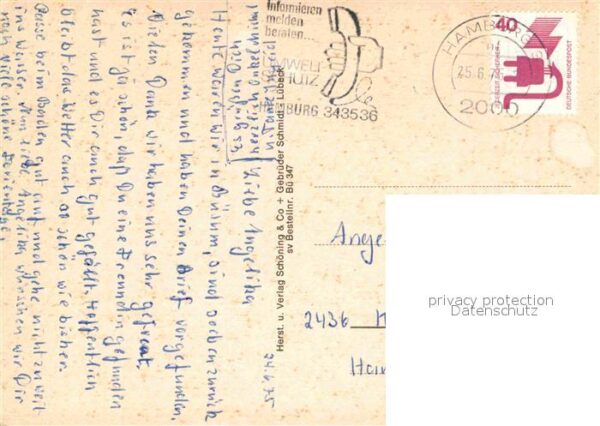 Informieren
melden
beraten...
UMWELT
SCHUTZ
HAMBURG 343536
HAMBURG
25.6.7
2000
40
DEUTSCHE BUNDESPOST
24.6.75
Liebe Angelika
Heute waren wir in Büsum, sind soeben zurück
gekommen und haben Deinen Brief vorgefunden.
Vielen Dank wir haben uns sehr gefreut.
Es ist ja schön, daß Du eine Freundin gefunden
hast und es Dir auch gut gefällt. Hoffentlich
bleibt das Wetter auch so schön wie bisher.
Passe beim Baden gut auf und gehe nicht zu weit
ins Wasser. Nun liebe Angelika wünschen wir Dir
noch viele schöne Ferientage.
Herst. u. Verlag Schöning & Co + Gebrüder Schmidt, Lübeck
sv Bestellnr. Bü 347
Ange
2436
privacy protection
Datenschutz